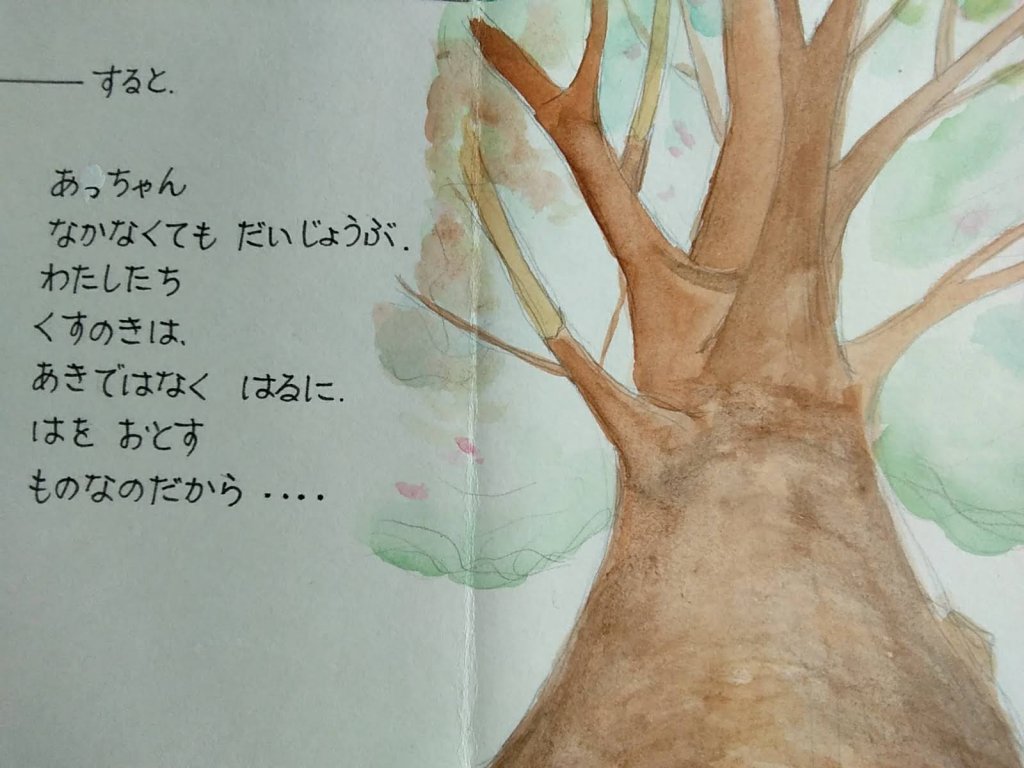 ——すると、
あっちゃん
なかなくても だいじょうぶ.
わたしたち
くすのきは、
あきではなく はるに、
はを おとす
ものなのだから ‥‥